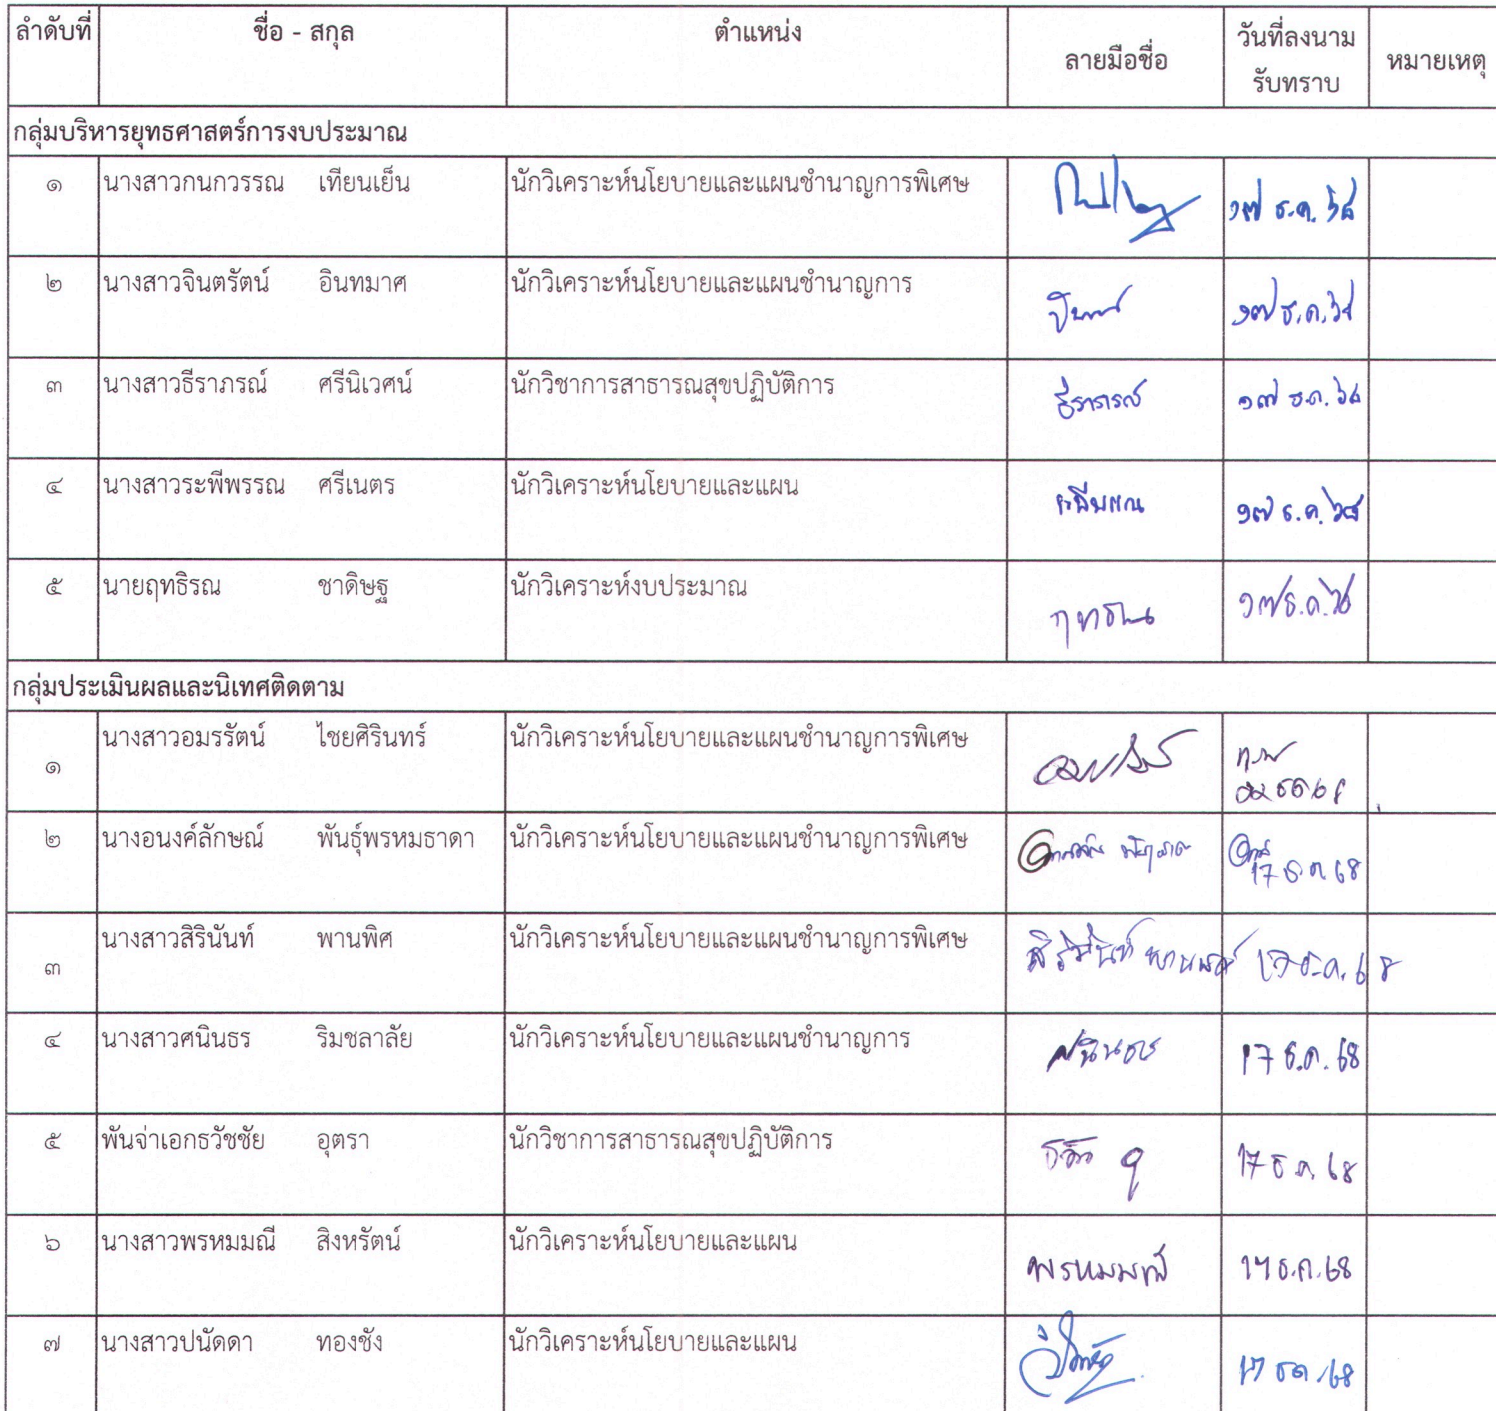 ลำดับที่ ชื่อ - สกุล ตำแหน่ง ลายมือชื่อ วันที่ลงนาม หมายเหตุ
รับทราบ
กลุ่มบริหารยุทธศาสตร์การงบประมาณ
๑ นางสาวกนกวรรณ เทียนเย็น นักวิเคราะห์นโยบายและแผนชำนาญการพิเศษ ๑๗ ธ.ค. ๖๘
๒ นางสาวจินตรัตน์ อินทมาศ นักวิเคราะห์นโยบายและแผนชำนาญการ ๑๗ ธ.ค. ๖๘
๓ นางสาวธีราภรณ์ ศรีนิเวศน์ นักวิชาการสาธารณสุขปฏิบัติการ ธีราภรณ์ ๑๗ ธ.ค. ๖๘
๔ นางสาวระพีพรรณ ศรีเนตร นักวิเคราะห์นโยบายและแผน ๑๗ ธ.ค. ๖๘
๕ นายฤทธิรณ ชาดิษฐ นักวิเคราะห์งบประมาณ ๑๗ ธ.ค. ๖๘
กลุ่มประเมินผลและนิเทศติดตาม
๑ นางสาวอมรรัตน์ ไชยศิรินทร์ นักวิเคราะห์นโยบายและแผนชำนาญการพิเศษ
๒ นางอนงค์ลักษณ์ พันธุ์พรหมธาดา นักวิเคราะห์นโยบายและแผนชำนาญการพิเศษ 17 ธ.ค 68
๓ นางสาวสิรินันท์ พานพิศ นักวิเคราะห์นโยบายและแผนชำนาญการพิเศษ สิรินันท์ พานพิศ 17 ธ.ค. 68
๔ นางสาวศนินธร ริมชลาลัย นักวิเคราะห์นโยบายและแผนชำนาญการ ศนินธร 17 ธ.ค. 68
๕ พันจ่าเอกธวัชชัย อุตรา นักวิชาการสาธารณสุขปฏิบัติการ 17 ธ.ค. 68
๖ นางสาวพรหมมณี สิงหรัตน์ นักวิเคราะห์นโยบายและแผน พรหมมณี 17 ธ.ค. 68
๗ นางสาวปนัดดา ทองชัง นักวิเคราะห์นโยบายและแผน 17 ธค. 68